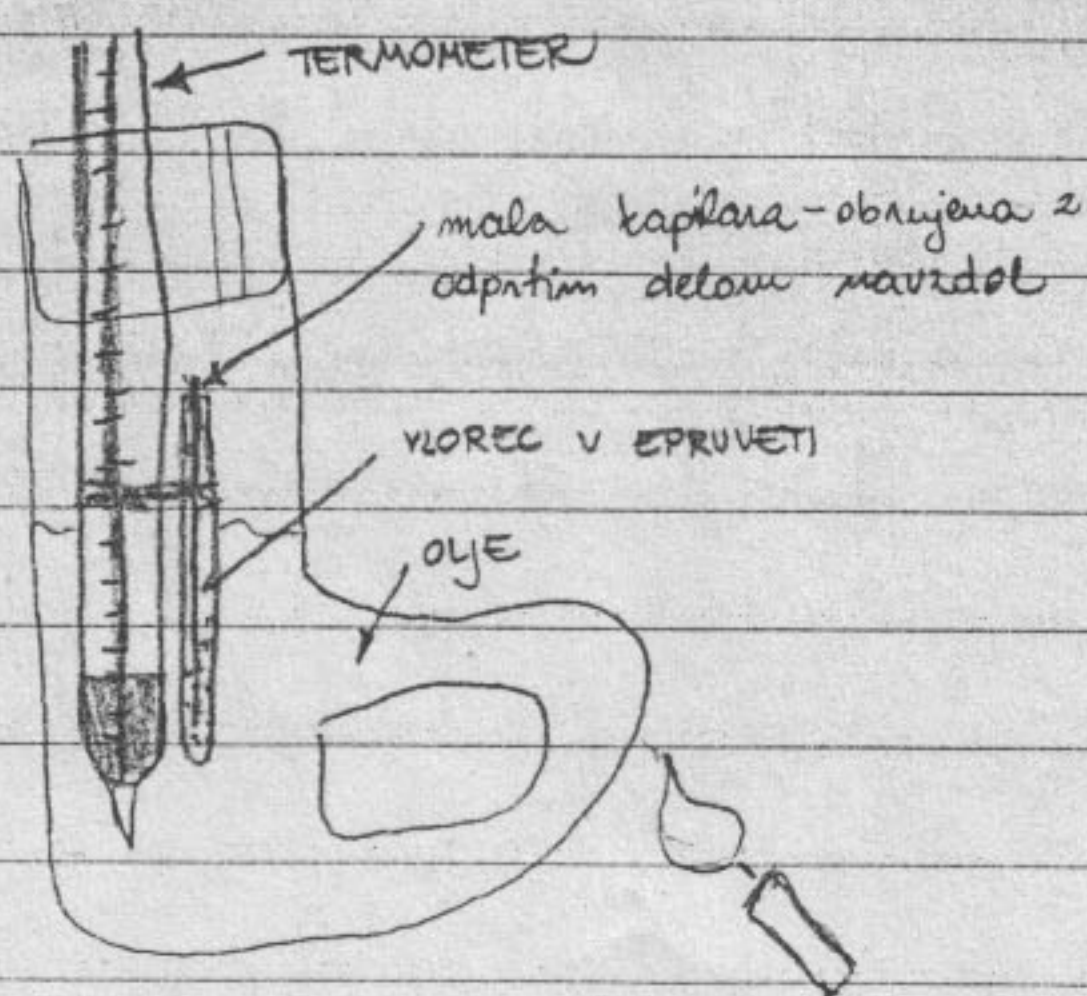 TERMOMETER
mala kapilara - obrnjena z
odprtim delom navzdol
VZOREC V EPRUVETI
OLJE